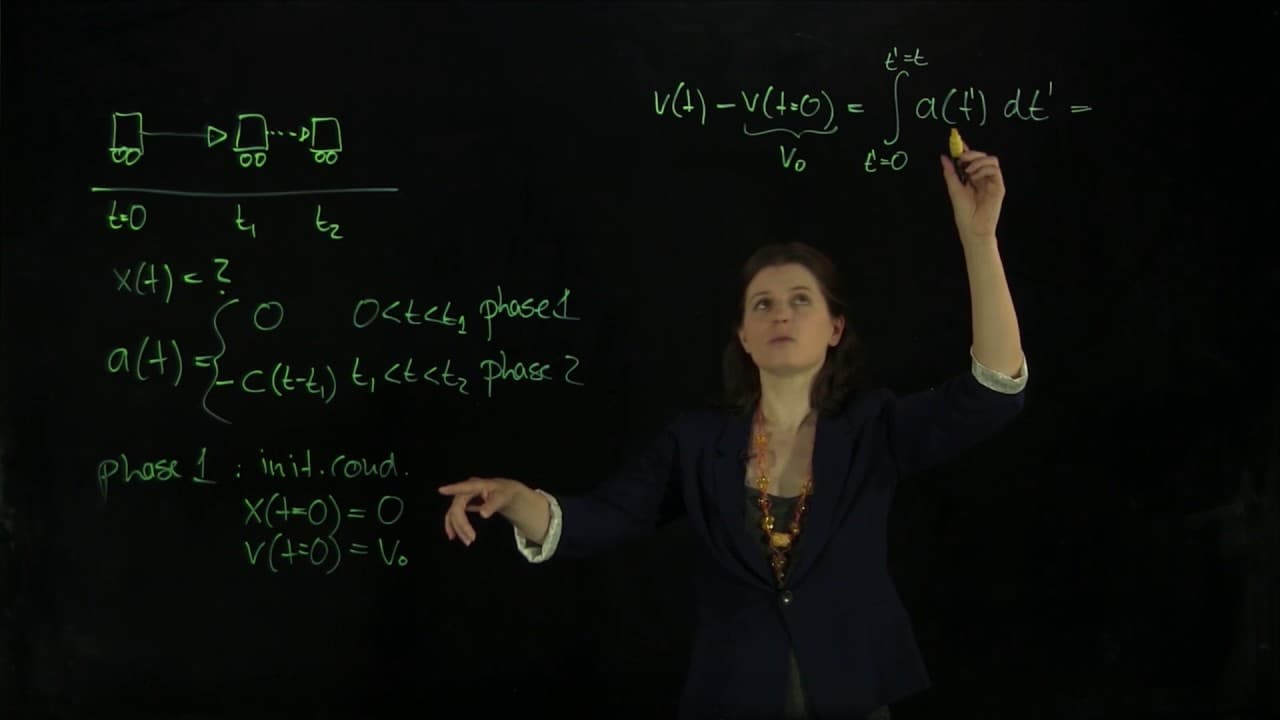 t=0 t₁ t₂
x(t) = ?
a(t) = { 0 0<t<t₁ phase 1
-C(t-t₁) t₁<t<t₂ phase 2
phase 1 : init. cond.
x(t=0) = 0
v(t=0) = v₀
t'=t
v(t) - v(t=0) = ∫ a(t') dt' =
v₀ t'=0